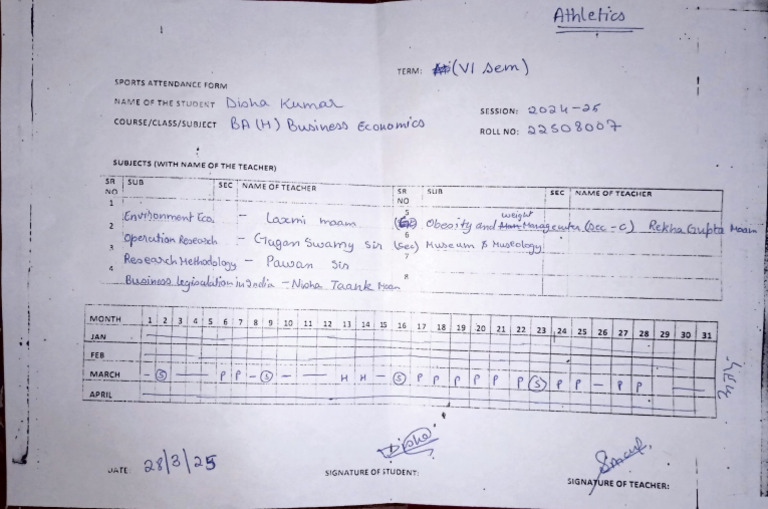 Athletics
TERM: (VI Sem)
SPORTS ATTENDANCE FORM
NAME OF THE STUDENT Disha Kumar
SESSION: 2024-25
COURSE/CLASS/SUBJECT BA (H) Business Economics
ROLL NO: 22508007
SUBJECTS (WITH NAME OF THE TEACHER)
SR NO SUB SEC NAME OF TEACHER SR NO SUB SEC NAME OF TEACHER
1 Environment Eco. - Laxmi maam 5 Obesity and weight (Sec-C) Rekha Gupta Maam
2 Operation Research - Gagan Swamy Sir 6 (sec) Museum & Museology
3 Research Methodology - Pawan Sir 7
4 Business legisulation in India - Nisha Taank Mam 8
MONTH 1 2 3 4 5 6 7 8 9 10 11 12 13 14 15 16 17 18 19 20 21 22 23 24 25 26 27 28 29 30 31
JAN
FEB
MARCH - S — P P - S - — H H - S P P P P P P S P P - P P —
APRIL
DATE: 28/3/25
Disha
SIGNATURE OF STUDENT:
SIGNATURE OF TEACHER: